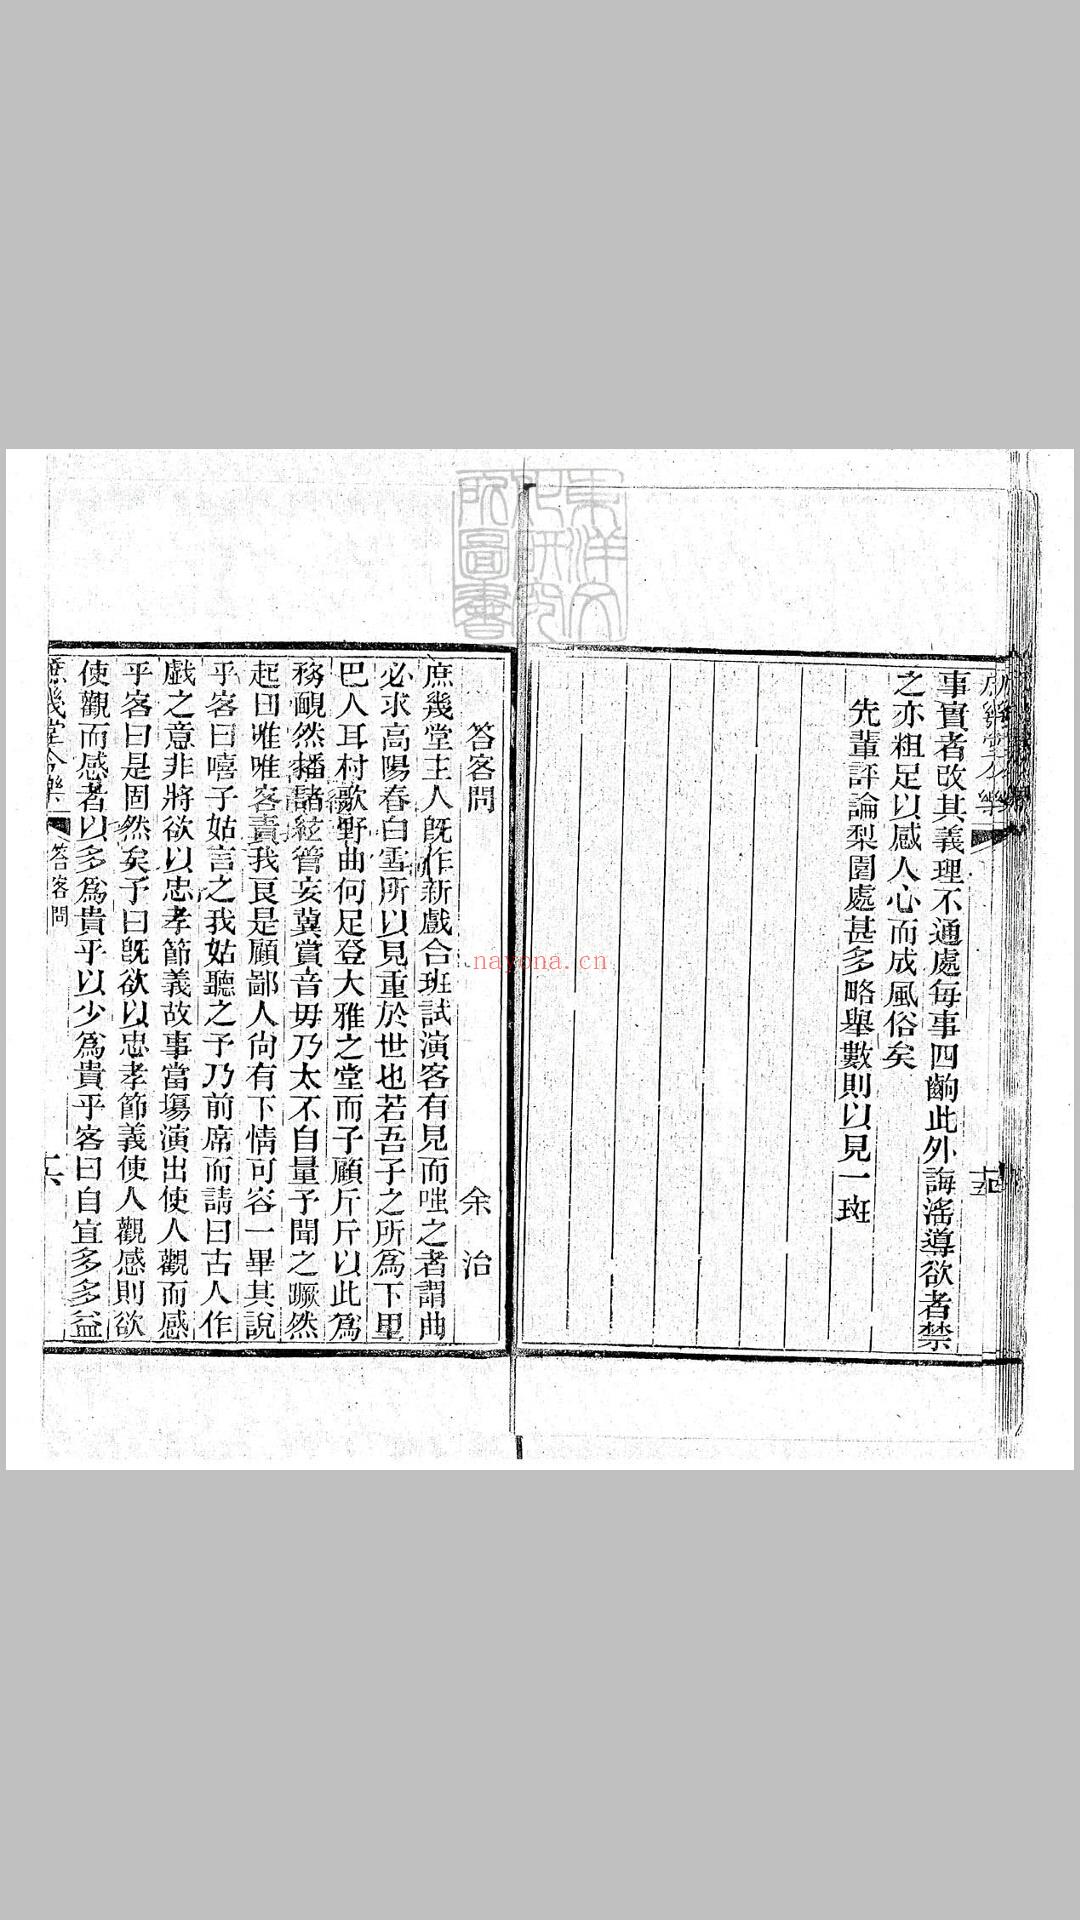 事實者改其義理不通處每事四齣此外誨淫導欲者禁
之亦粗足以感人心而成風俗矣
先輩評論梨園處甚多略舉數則以見一斑
東洋文化研究所圖書
nayona.cn
答客問
余治
庶幾堂主人旣作新戲合班試演客有見而嗤之者謂曲
必求高陽春白雪所以見重於世也若吾子之所爲下里
巴人耳村歌野曲何足登大雅之堂而子顧斤斤以此爲
務靦然播諸絃管妄冀賞音毋乃太不自量予聞之蹶然
起曰唯唯客責我良是顧鄙人尙有下情可容一畢其說
乎客曰嘻子姑言之我姑聽之予乃前席而請曰古人作
戲之意非將欲以忠孝節義故事當場演出使人觀而感
乎客曰是固然矣予曰旣欲以忠孝節義使人觀感則欲
使觀而感者以多爲貴乎以少爲貴乎客曰自宜多多益
庶幾堂今樂
答客問